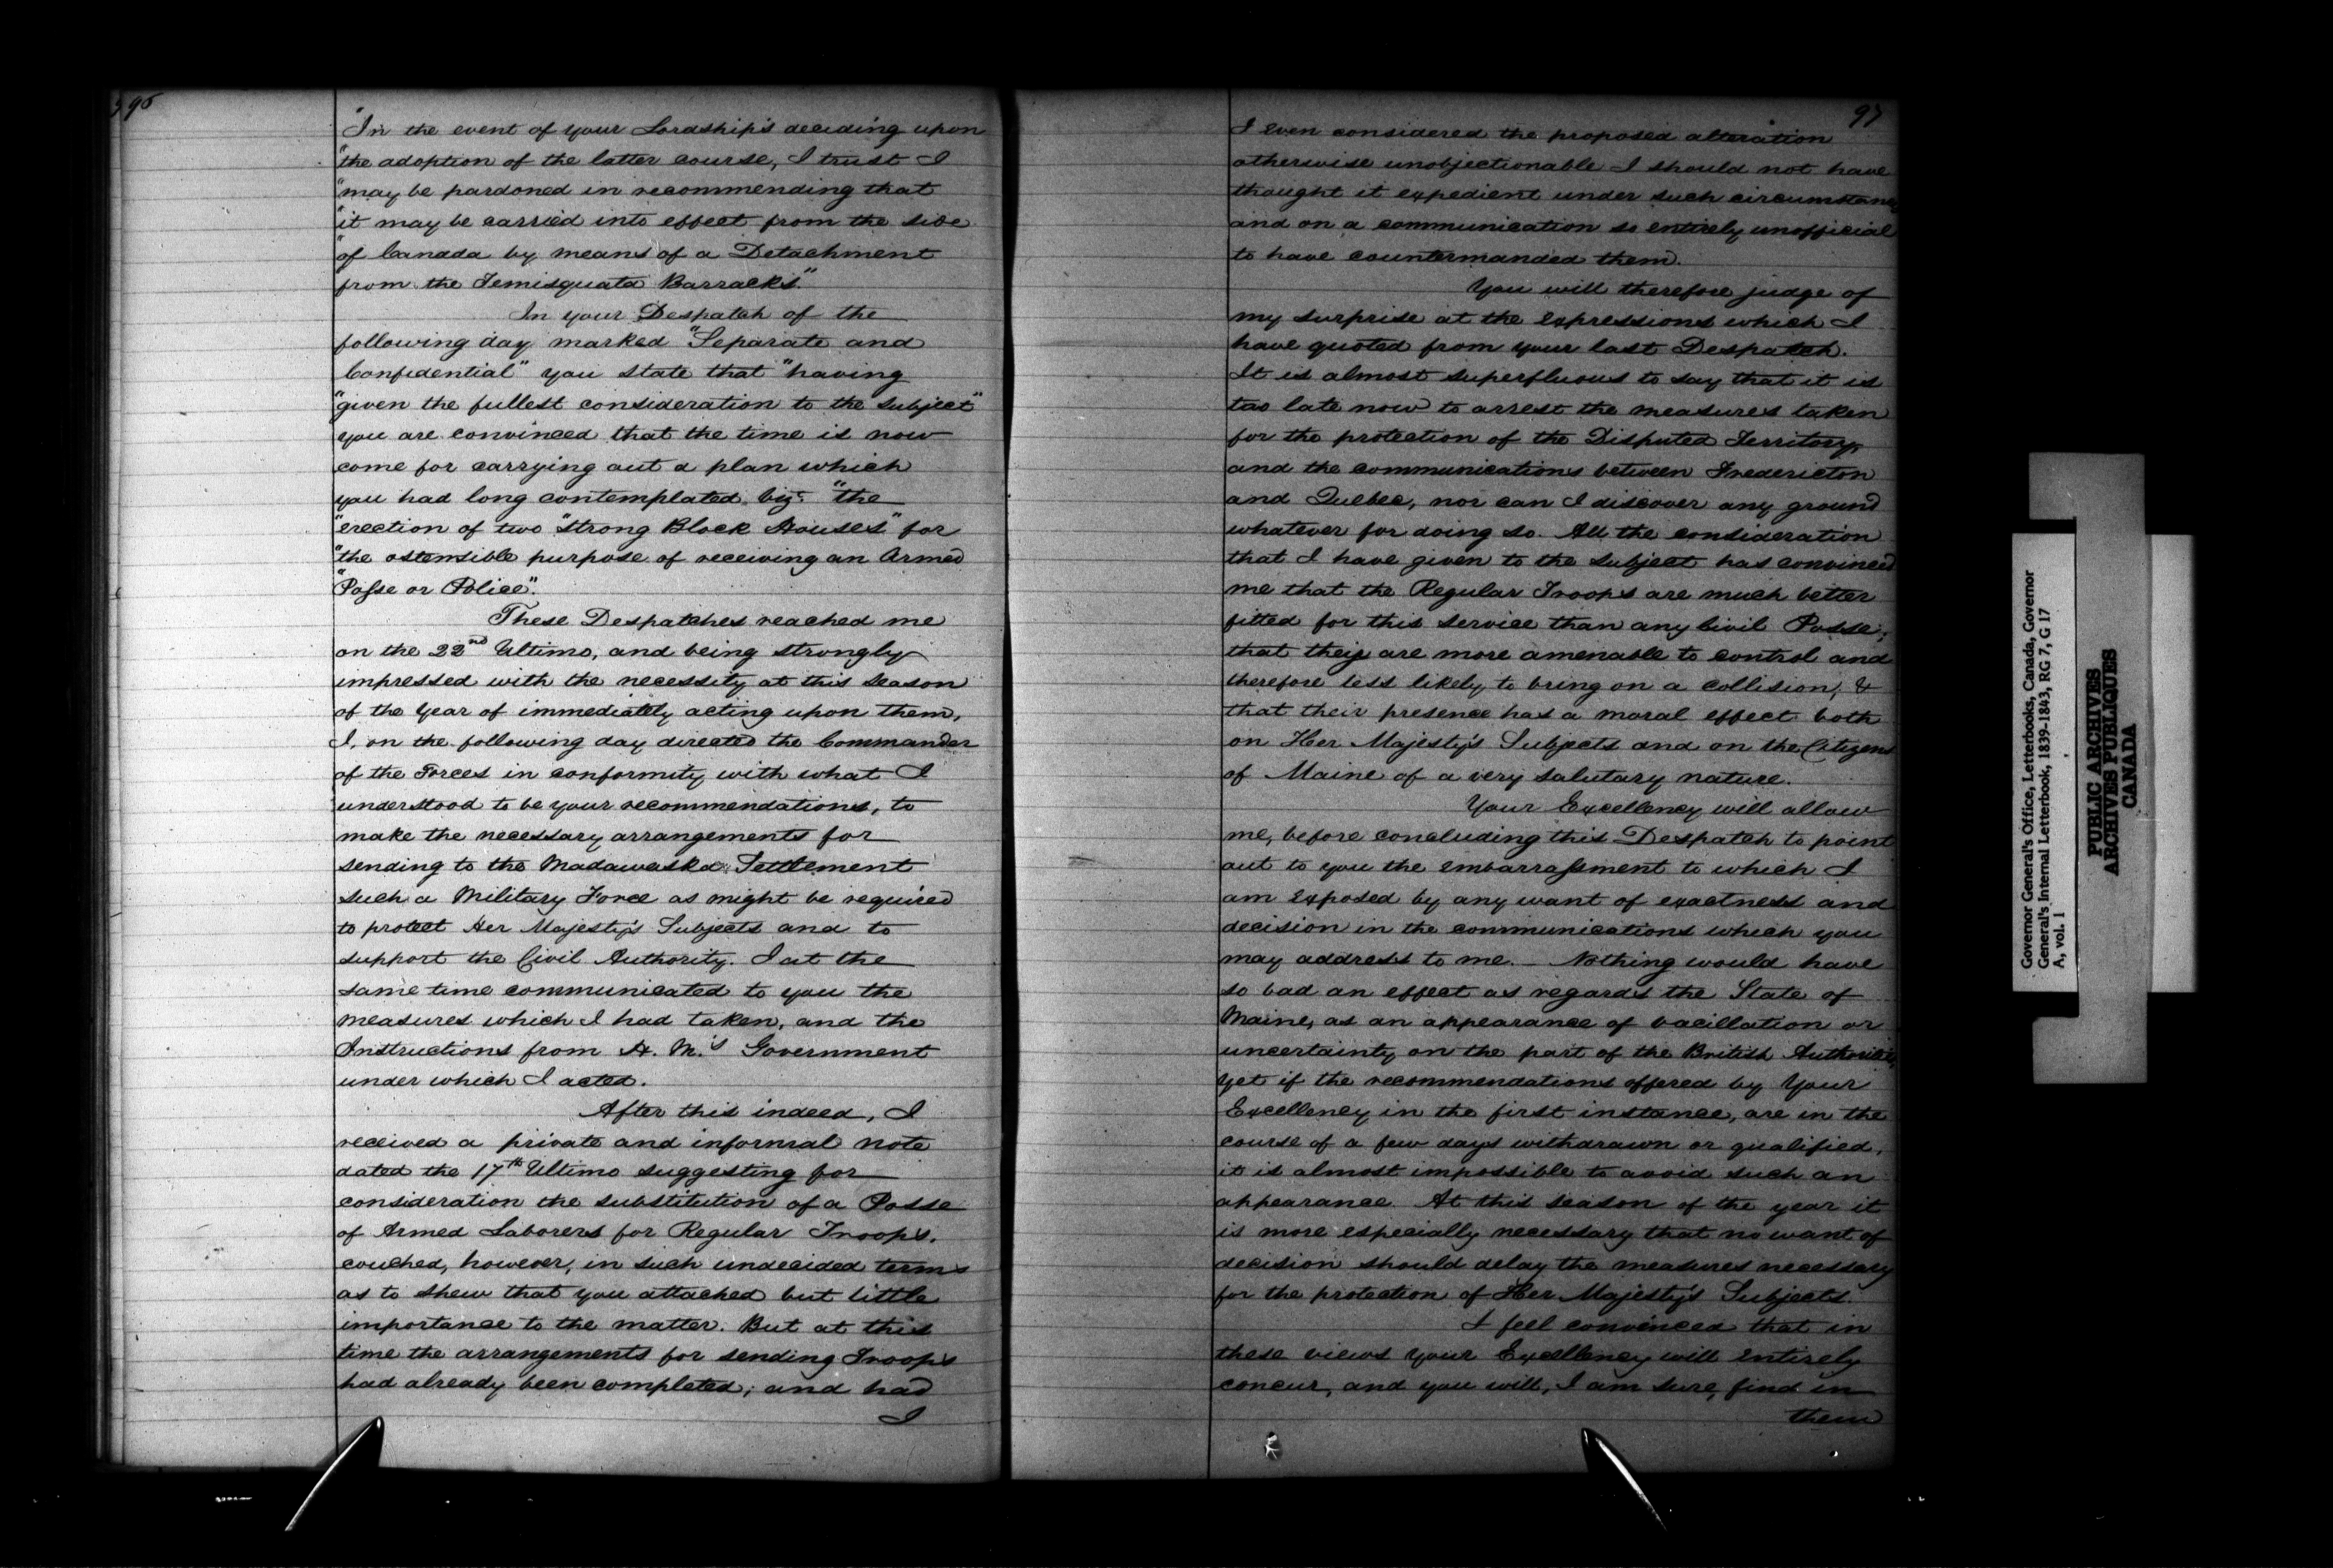 96
"In the event of your Lordship's deciding upon
"the adoption of the latter course, I trust I
"may be pardoned in recommending that
"it may be carried into effect from the side
"of Canada by means of a Detachment
from the Temisquata Barracks."
In your Despatch of the
following day marked "Separate and
Confidential" you state that "having
"given the fullest consideration to the subject"
you are convinced that the time is now
come for carrying out a plan which
you had long contemplated viz: "the
"erection of two "strong Block Houses" for
"the ostensible purpose of receiving an Armed
"Posse or Police".
These Despatches reached me
on the 22nd Ultimo, and being strongly
impressed with the necessity at this season
of the Year of immediately acting upon them,
I, on the following day directed the Commander
of the Forces in conformity with what I
understood to be your recommendations, to
make the necessary arrangements for
sending to the Madawaska Settlement
such a Military Force as might be required
to protect Her Majesty's Subjects and to
support the Civil Authority. I at the
same time communicated to you the
measures which I had taken, and the
Instructions from H. M.'s Government
under which I acted.
After this indeed, I
received a private and informal note
dated the 17th Ultimo suggesting for
consideration the substitution of a Posse
of Armed Laborers for Regular Troops,
couched, however, in such undecided terms
as to shew that you attached but little
importance to the matter. But at this
time the arrangements for sending Troops
had already been completed; and had
I
97
I even considered the proposed alteration
otherwise unobjectionable I should not have
thought it expedient under such circumstances
and on a communication so entirely unofficial
to have countermanded them.
You will therefore judge of
my surprise at the expressions which I
have quoted from your last Despatch.
It is almost superfluous to say that it is
too late now to arrest the measures taken
for the protection of the Disputed Territory,
and the communications between Fredericton
and Quebec, nor can I discover any ground
whatever for doing so. All the consideration
that I have given to the subject has convinced
me that the Regular Troops are much better
fitted for this service than any Civil Posse;
that they are more amenable to control and
therefore less likely to bring on a collision; &
that their presence has a moral effect both
on Her Majesty's Subjects and on the Citizens
of Maine of a very salutary nature.
Your Excellency will allow
me, before concluding this Despatch to point
out to you the embarrassment to which I
am exposed by any want of exactness and
decision in the communications which you
may address to me. Nothing would have
so bad an effect as regards the State of
Maine, as an appearance of vacillation or
uncertainty on the part of the British Authorities,
yet if the recommendations offered by Your
Excellency in the first instance, are in the
course of a few days withdrawn or qualified,
it is almost impossible to avoid such an
appearance. At this season of the year it
is more especially necessary that no want of
decision should delay the measures necessary
for the protection of Her Majesty's Subjects.
I feel convinced that in
these views your Excellency will entirely
concur, and you will, I am sure, find in
them
Governor General's Office, Letterbooks, Canada, Governor
General's Internal Letterbook, 1839-1843, RG 7, G 17
A, vol. 1
PUBLIC ARCHIVES
ARCHIVES PUBLIQUES
CANADA